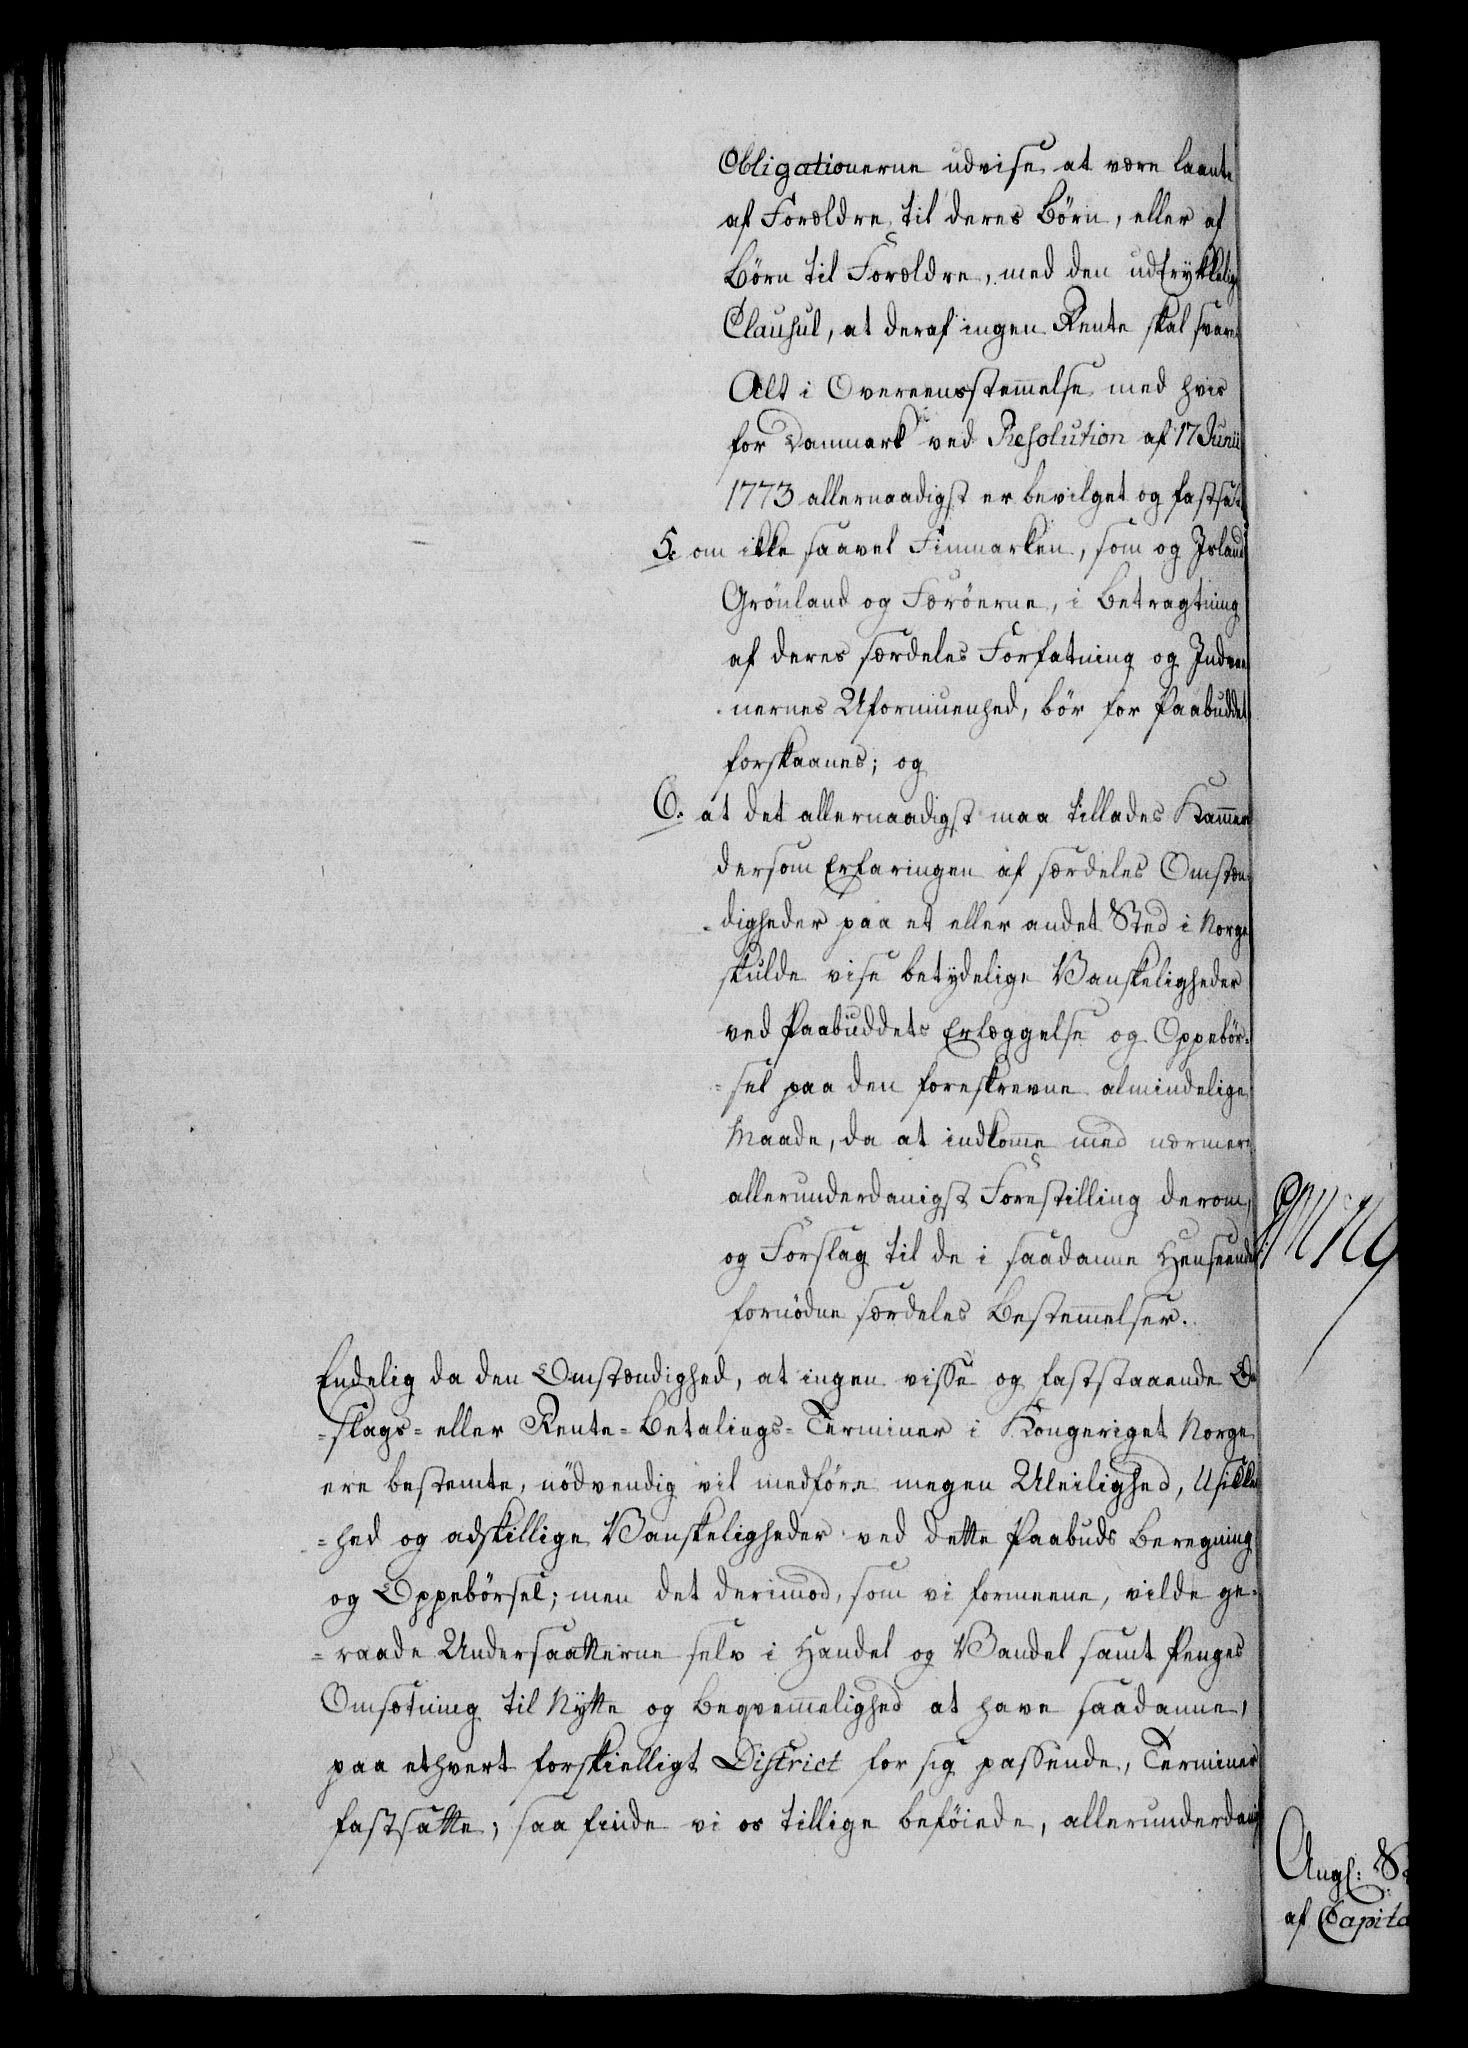 Obligationerne udvise at være laante
af Forældre til deres Börn, eller af
Börn til Forældre, med den udtrykkelig
Clausul, at deraf ingen Rente skal svare
Alt i Overeensstem̅else med hvis
for Danmark ved Resolution af 17 Junii
1773 allernaadigst er bevilget og fastsat.
5. om ikke saavel Finmarken, som og Island
Grönland og Færöerne, i Betragtning
af deres særdeles Forfatning og Indvaa
nernes Uformuenhed, bör for Paabuddet
forskaanes; og
6. at det allernaadigst maa tillades Kam̅er
dersom Erfaringen af særdeles Omstæn-
-digheder paa et eller andet Sted i Norge
skulde vise betydelige Vanskeligheder
ved Paabuddets Erlæggelse og Oppebör-
-sel paa den foreskrevne almindelige
Maade, da at indkom̅e med nærmere
allerunderdanigst Forestilling derom,
og Forslag til de i saadanne Henseender
fornödne særdeles Bestem̅elser.
Endelig da den Omstændighed, at ingen visse og faststaaende
-slags- eller Rente-Betalings-Terminer i Kongeriget Norge
ere bestemte, nödvendig vil medföre megen Uleilighed, Usikker
-hed og adskillige Vanskeligheder ved dette Paabuds Beregning
og Oppebörsel; men det derimod, som vi formeene, vilde ge-
-raade Undersaatterne selv i Handel og Vandel samt Penges
Omsætning til Nytte og Beqvem̅elighed at have saadanne,
paa ethvert forskielligt District for sig passende, Terminer
fastsatte; saa finde vi os tillige beföiede, allerunderdanig
Angl: S
af Capita